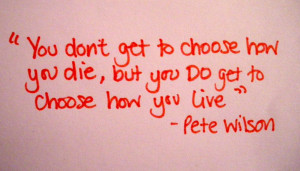 “You don't get to choose how
you die, but you DO get to
choose how you live”
- Pete Wilson